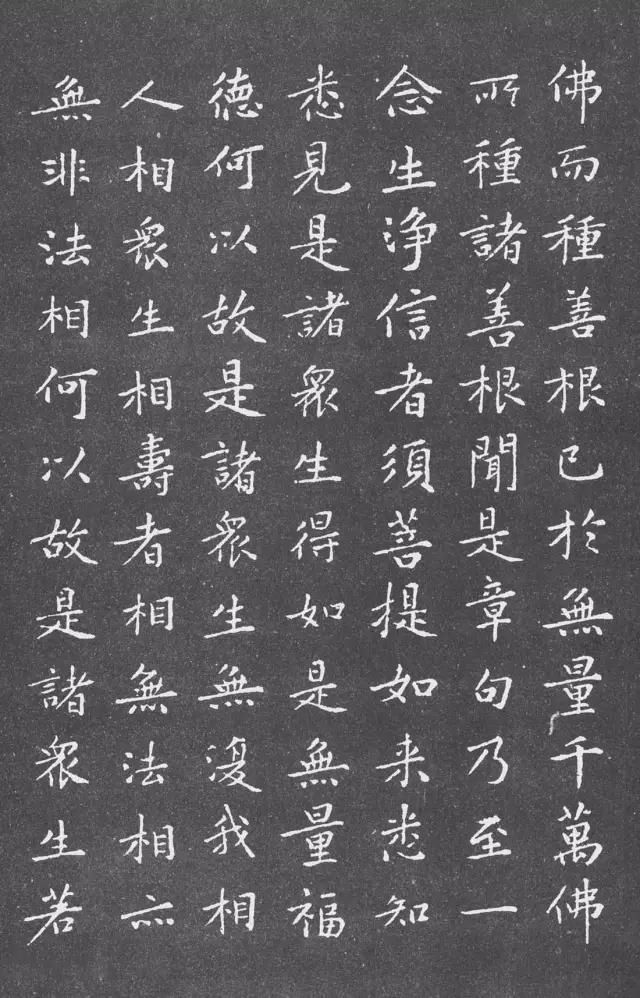 佛而種善根已於無量千萬佛
所種諸善根聞是章句乃至一
念生淨信者須菩提如来悉知
悉見是諸衆生得如是無量福
德何以故是諸衆生無復我相
人相衆生相壽者相無法相亦
無非法相何以故是諸衆生若